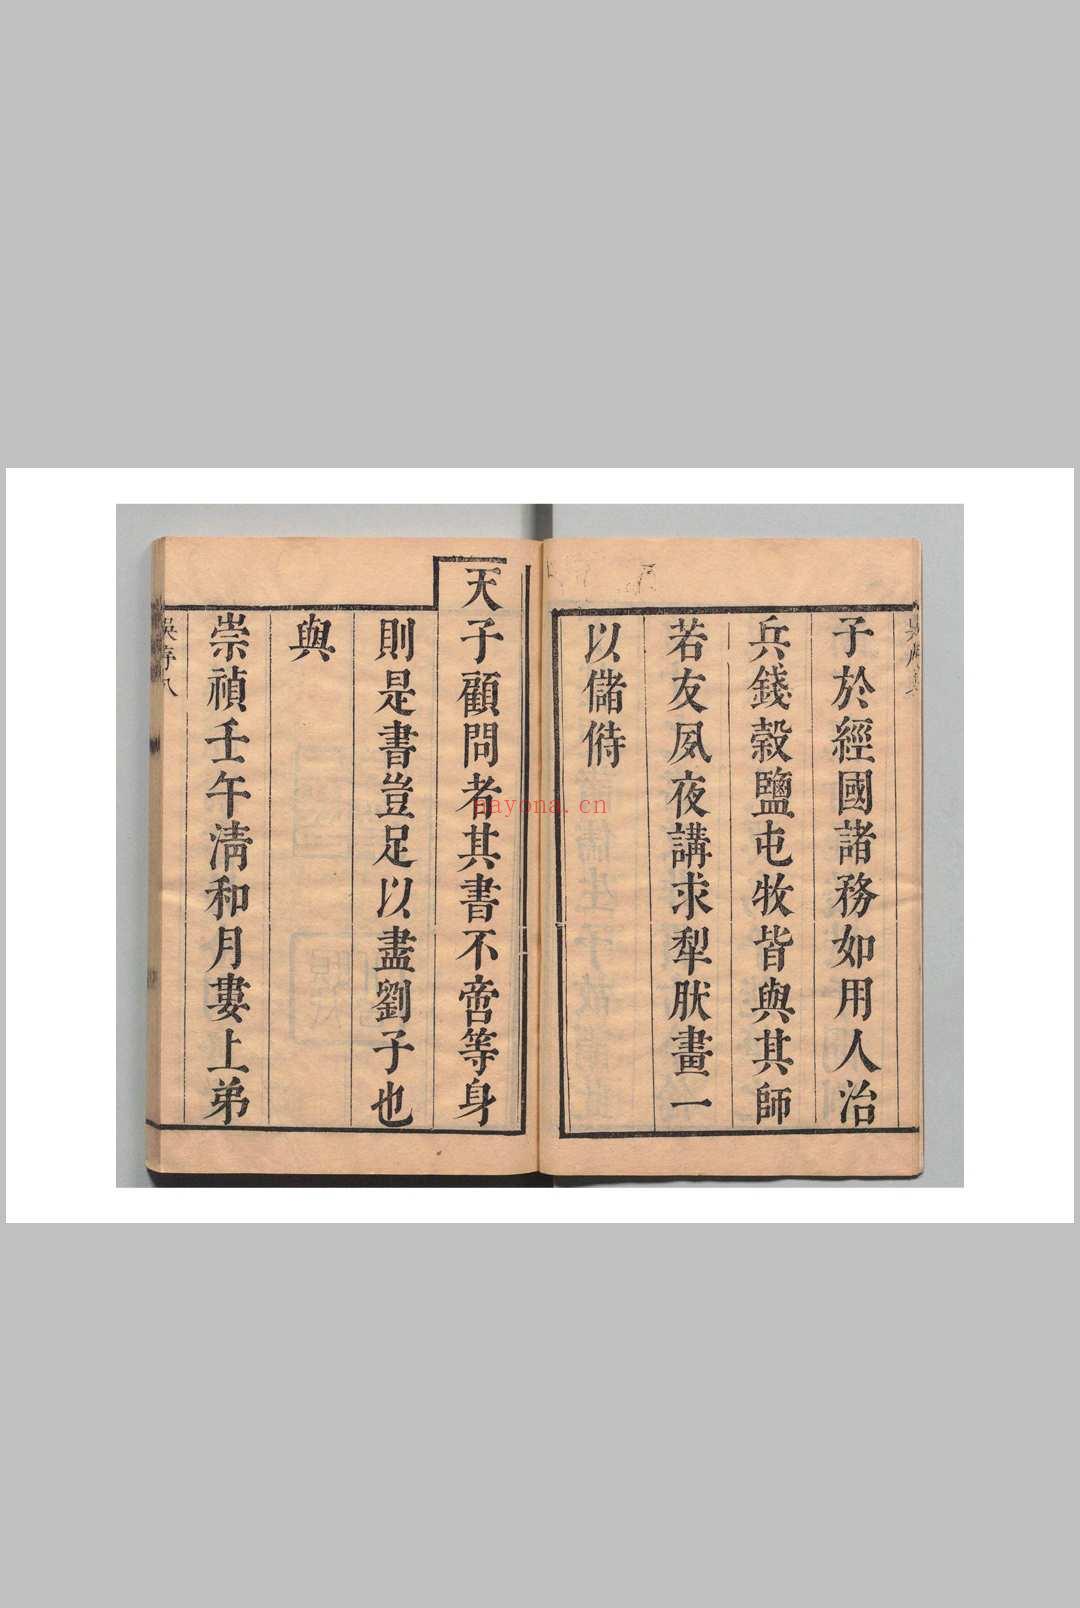 子於經國諸務如用人治
兵錢榖鹽屯牧皆與其師
若友夙夜講求犁肰畫一
以儲偫
天子顧問者其書不啻等身
則是書豈足以盡劉子也
與
崇禎壬午清和月婁上弟
吳序八
nayona.cn